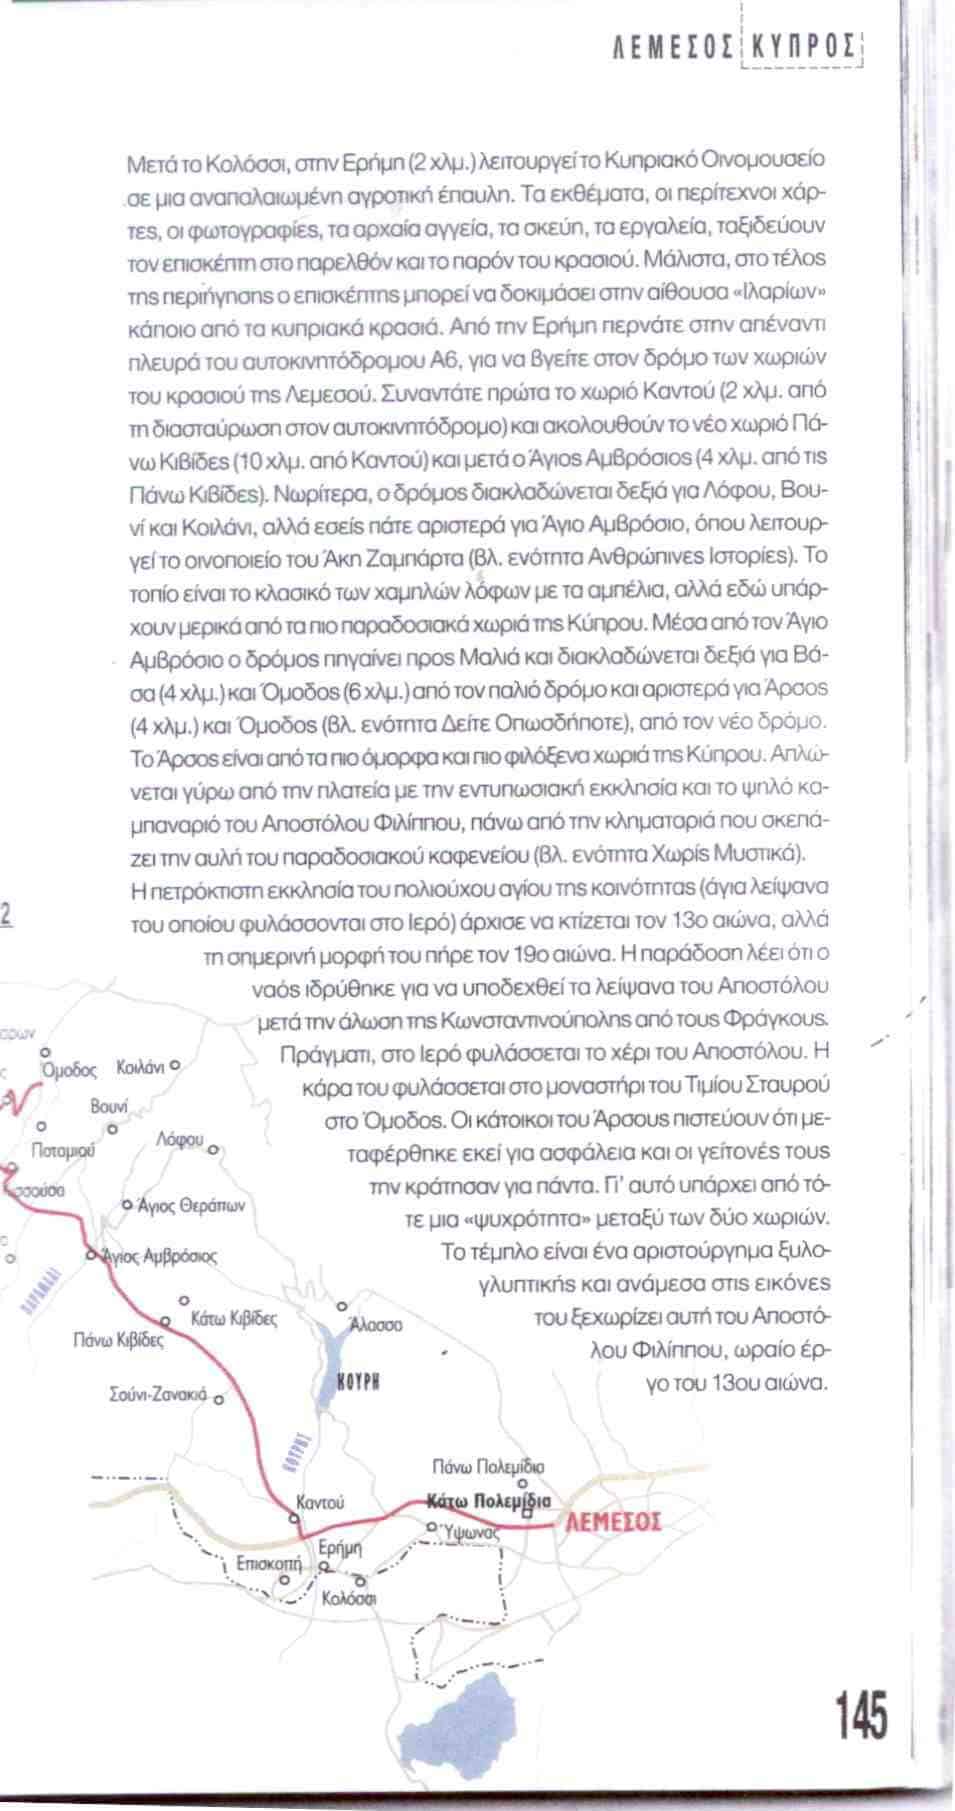 ΛΕΜΕΣΟΣ ΚΥΠΡΟΣ
Μετά το Κολόσσι, στην Ερήμη (2 χλμ.) λειτουργεί το Κυπριακό Οινομουσείο
σε μια αναπαλαιωμένη αγροτική έπαυλη. Τα εκθέματα, οι περίτεχνοι χάρ-
τες, οι φωτογραφίες, τα αρχαία αγγεία, τα σκεύη, τα εργαλεία, ταξιδεύουν
τον επισκέπτη στο παρελθόν και το παρόν του κρασιού. Μάλιστα, στο τέλος
της περιήγησης ο επισκέπτης μπορεί να δοκιμάσει στην αίθουσα «Ιλαρίων»
κάποιο από τα κυπριακά κρασιά. Από την Ερήμη περνάτε στην απέναντι
πλευρά του αυτοκινητόδρομου Α6, για να βγείτε στον δρόμο των χωριών
του κρασιού της Λεμεσού. Συναντάτε πρώτα το χωριό Καντού (2 χλμ. από
τη διασταύρωση στον αυτοκινητόδρομο) και ακολουθούν το νέο χωριό Πά-
νω Κιβίδες (10 χλμ. από Καντού) και μετά ο Άγιος Αμβρόσιος (4 χλμ. από τις
Πάνω Κιβίδες). Νωρίτερα, ο δρόμος διακλαδώνεται δεξιά για Λόφου, Βου-
νί και Κοιλάνι, αλλά εσείς πάτε αριστερά για Άγιο Αμβρόσιο, όπου λειτουρ-
γεί το οινοποιείο του Άκη Ζαμπάρτα (βλ. ενότητα Ανθρώπινες Ιστορίες). Το
τοπίο είναι το κλασικό των χαμηλών λόφων με τα αμπέλια, αλλά εδώ υπάρ-
χουν μερικά από τα πιο παραδοσιακά χωριά της Κύπρου. Μέσα από τον Άγιο
Αμβρόσιο ο δρόμος πηγαίνει προς Μαλιά και διακλαδώνεται δεξιά για Βά-
σα (4 χλμ.) και Όμοδος (6 χλμ.) από τον παλιό δρόμο και αριστερά για Άρσος
(4 χλμ.) και Όμοδος (βλ. ενότητα Δείτε Οπωσδήποτε), από τον νέο δρόμο.
Το Άρσος είναι από τα πιο όμορφα και πιο φιλόξενα χωριά της Κύπρου. Απλώ-
νεται γύρω από την πλατεία με την εντυπωσιακή εκκλησία και το ψηλό κα-
μπαναριό του Αποστόλου Φιλίππου, πάνω από την κληματαριά που σκεπά-
ζει την αυλή του παραδοσιακού καφενείου (βλ. ενότητα Χωρίς Μυστικά).
Η πετρόκτιστη εκκλησία του πολιούχου αγίου της κοινότητας (άγια λείψανα
του οποίου φυλάσσονται στο Ιερό) άρχισε να κτίζεται τον 13ο αιώνα, αλλά
τη σημερινή μορφή του πήρε τον 19ο αιώνα. Η παράδοση λέει ότι ο
ναός ιδρύθηκε για να υποδεχθεί τα λείψανα του Αποστόλου
μετά την άλωση της Κωνσταντινούπολης από τους Φράγκους.
Πράγματι, στο Ιερό φυλάσσεται το χέρι του Αποστόλου. Η
κάρα του φυλάσσεται στο μοναστήρι του Τιμίου Σταυρού
στο Όμοδος. Οι κάτοικοι του Άρσους πιστεύουν ότι με-
ταφέρθηκε εκεί για ασφάλεια και οι γείτονές τους
την κράτησαν για πάντα. Γι' αυτό υπάρχει από τό-
τε μια «ψυχρότητα» μεταξύ των δύο χωριών.
Το τέμπλο είναι ένα αριστούργημα ξυλο-
γλυπτικής και ανάμεσα στις εικόνες
του ξεχωρίζει αυτή του Αποστό-
λου Φιλίππου, ωραίο έρ-
γο του 13ου αιώνα.
2
Όμοδος
Κοιλάνι
Βουνί
Ποταμιού
Λόφου
Άγιος Θεράπων
Άγιος Αμβρόσιος
Κάτω Κιβίδες
Πάνω Κιβίδες
Άλασσα
ΚΟΥΡΗ
Σούνι-Ζανακιά
ΚΟΥΡΗΣ
Πάνω Πολεμίδια
Καντού
Κάτω Πολεμίδια
ΛΕΜΕΣΟΣ
Ύψωνας
Ερήμη
Επισκοπή
Κολόσσι
145